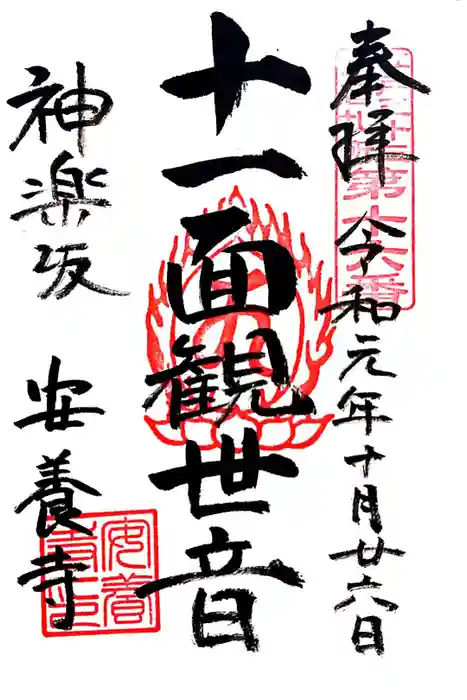 奉拝 令和元年十月廿六日
十一面観世音
神楽坂 安養寺
第十六番
安養寺印